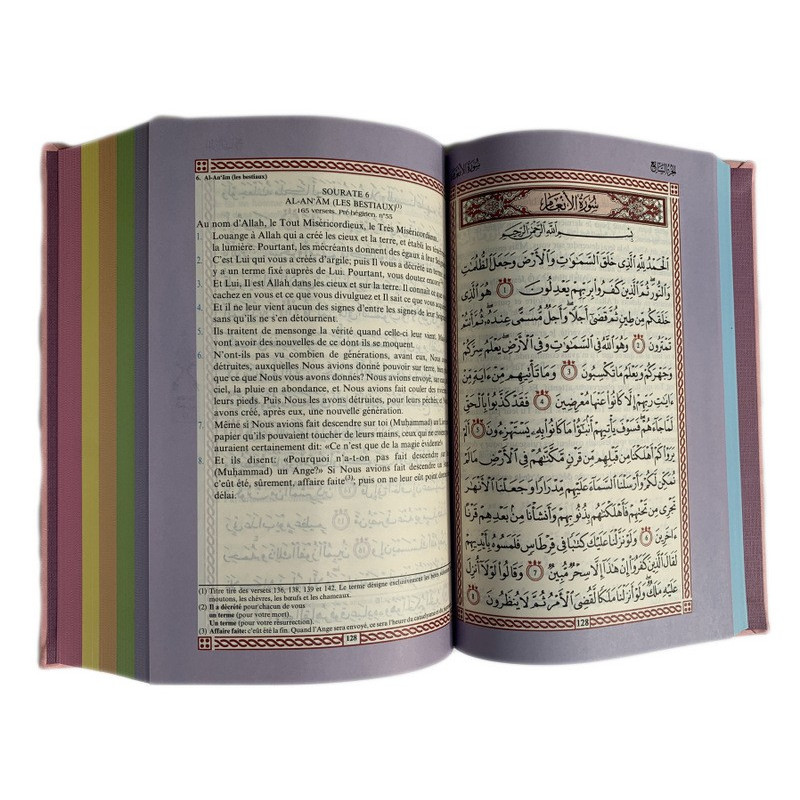 6. Al-An'âm (les bestiaux)
SOURATE 6
AL-AN'ÂM (LES BESTIAUX)(1)
165 versets. Pré-hégirien. n°55
Au nom d'Allah, le Tout Miséricordieux, le Très Miséricordieux.
1. Louange à Allah qui a créé les cieux et la terre, et établi les
la lumière. Pourtant, les mécréants donnent des égaux à leur
2. C'est Lui qui vous a créés d'argile; puis Il vous a décrété un
y a un terme fixé auprès de Lui. Pourtant, vous doutez
3. Et Lui, Il est Allah dans les cieux et sur la terre. Il connaît ce
cachez en vous et ce que vous divulguez et Il sait ce que vous
4. Et il ne leur vient aucun des signes d'entre les signes de leur
sans qu'ils ne s'en détournent.
5. Ils traitent de mensonge la vérité quand celle-ci leur vient.
vont avoir des nouvelles de ce dont ils se moquent.
6. N'ont-ils pas vu combien de générations, avant eux, Nous
détruites, auxquelles Nous avions donné pouvoir sur terre, bien
que ce que Nous vous avons donné? Nous avions envoyé, sur eux, du
ciel, la pluie en abondance, et Nous avions fait couler des
leurs pieds. Puis Nous les avons détruites, pour leurs péchés, et
avons créé, après eux, une nouvelle génération.
7. Même si Nous avions fait descendre sur toi (Muḥammad) un
papier qu'ils pouvaient toucher de leurs mains, ceux qui ne
auraient certainement dit: «Ce n'est que de la magie évidente!
8. Et ils disent: «Pourquoi n'a-t-on pas fait descendre sur
(Muḥammad) un Ange?» Si Nous avions fait descendre un
c'eût été, sûrement, affaire faite(3); puis on ne leur eût point
délai.
(1) Titre tiré des versets 136, 138, 139 et 142. Le terme désigne exclusivement les bêtes
moutons, les chèvres, les bœufs et les chameaux.
(2) Il a décrété pour chacun de vous
un terme (pour votre mort).
Un terme (pour votre résurrection).
(3) Affaire faite: c'eût été la fin. Quand l'Ange sera envoyé, ce sera l'heure du
128
الجزء السابع
سورة الأنعام
بِسْمِ اللَّهِ الرَّحْمَٰنِ الرَّحِيمِ
الْحَمْدُ لِلَّهِ الَّذِي خَلَقَ السَّمَٰوَٰتِ وَالْأَرْضَ وَجَعَلَ الظُّلُمَٰتِ
وَالنُّورَ ثُمَّ الَّذِينَ كَفَرُوا بِرَبِّهِمْ يَعْدِلُونَ ١ هُوَ الَّذِي
خَلَقَكُم مِّن طِينٍ ثُمَّ قَضَىٰ أَجَلًا وَأَجَلٌ مُّسَمًّى عِندَهُ ثُمَّ أَنتُمْ
تَمْتَرُونَ ٢ وَهُوَ اللَّهُ فِي السَّمَٰوَٰتِ وَفِي الْأَرْضِ يَعْلَمُ سِرَّكُمْ
وَجَهْرَكُمْ وَيَعْلَمُ مَا تَكْسِبُونَ ٣ وَمَا تَأْتِيهِم مِّنْ ءَايَةٍ مِّنْ
ءَايَٰتِ رَبِّهِمْ إِلَّا كَانُوا عَنْهَا مُعْرِضِينَ ٤ فَقَدْ كَذَّبُوا بِالْحَقِّ
لَمَّا جَاءَهُمْ فَسَوْفَ يَأْتِيهِمْ أَنبَٰٓؤُا مَا كَانُوا بِهِ يَسْتَهْزِءُونَ ٥ أَلَمْ
يَرَوْا كَمْ أَهْلَكْنَا مِن قَبْلِهِم مِّن قَرْنٍ مَّكَّنَّٰهُمْ فِي الْأَرْضِ مَا لَمْ
نُمَكِّن لَّكُمْ وَأَرْسَلْنَا السَّمَاءَ عَلَيْهِم مِّدْرَارًا وَجَعَلْنَا الْأَنْهَٰرَ
تَجْرِي مِن تَحْتِهِمْ فَأَهْلَكْنَٰهُم بِذُنُوبِهِمْ وَأَنشَأْنَا مِن بَعْدِهِمْ قَرْنًا
ءَاخَرِينَ ٦ وَلَوْ نَزَّلْنَا عَلَيْكَ كِتَٰبًا فِي قِرْطَاسٍ فَلَمَسُوهُ بِأَيْدِيهِمْ
لَقَالَ الَّذِينَ كَفَرُوا إِنْ هَٰذَا إِلَّا سِحْرٌ مُّبِينٌ ٧ وَقَالُوا لَوْلَا أُنزِلَ
عَلَيْهِ مَلَكٌ وَلَوْ أَنزَلْنَا مَلَكًا لَّقُضِيَ الْأَمْرُ ثُمَّ لَا يُنظَرُونَ ٨
128